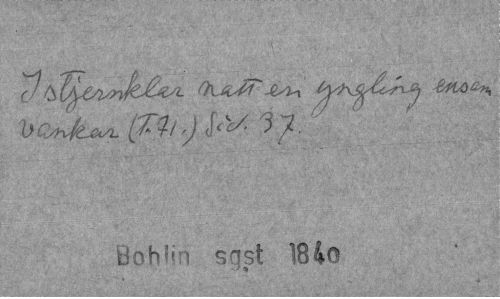 I stjernklar natt en yngling ensam
vankar (T.71.) Sid. 37.
Bohlin sgst 1840